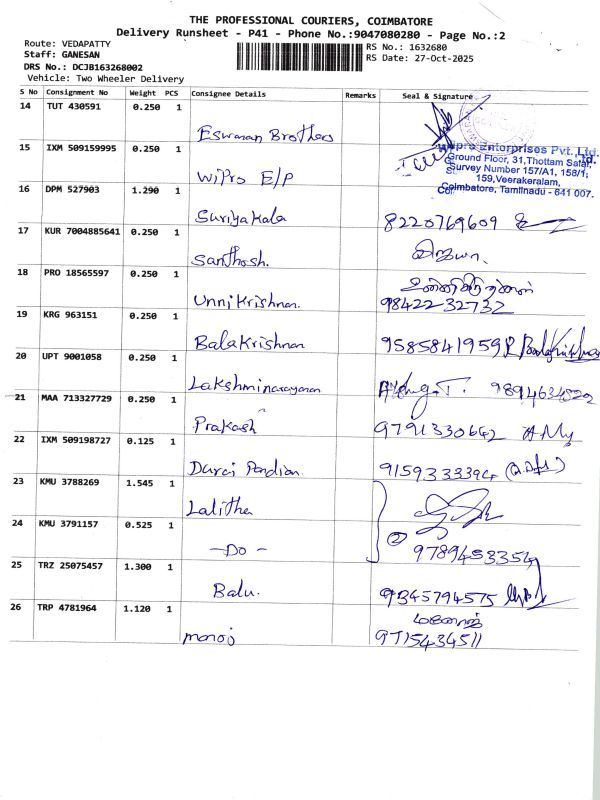 THE PROFESSIONAL COURIERS, COIMBATORE
Delivery Runsheet - P41 - Phone No.:9047080280 - Page No.:2
Route: VEDAPATTY
Staff: GANESAN
DRS No.: DCJB163268002
Vehicle: Two Wheeler Delivery
RS No.: 1632680
RS Date: 27-Oct-2025
S No Consignment No Weight PCS Consignee Details Remarks Seal & Signature
14 TUT 430591 0.250 1
Eswaran Brothers
15 IXM 509159995 0.250 1
Wipro E/P
Enterprises Pvt. Ltd.
Ground Floor, 31,Thottam Salai,
Survey Number 157/A1, 158/1,
159,Veerakeralam,
Coimbatore, Tamilnadu - 641 007.
16 DPM 527903 1.290 1
Suriyakala 8220769609
17 KUR 7004885641 0.250 1
Santhosh. விஜயா.
18 PRO 18565597 0.250 1
Unnikrishnan. 98422 32732
19 KRG 963151 0.250 1
Balakrishnan 9585841959 P Balakrishnan
20 UPT 9001058 0.250 1
Lakshminarayanan 9894634522
21 MAA 713327729 0.250 1
Prakash 9791330642
22 IXM 509198727 0.125 1
Durai Pandian. 9159333394
23 KMU 3788269 1.545 1
Lalitha
24 KMU 3791157 0.525 1
-Do- 2 9789453354
25 TRZ 25075457 1.300 1
Balu. 9345794575
26 TRP 4781964 1.120 1
manoj மனோஜ்
9715434511